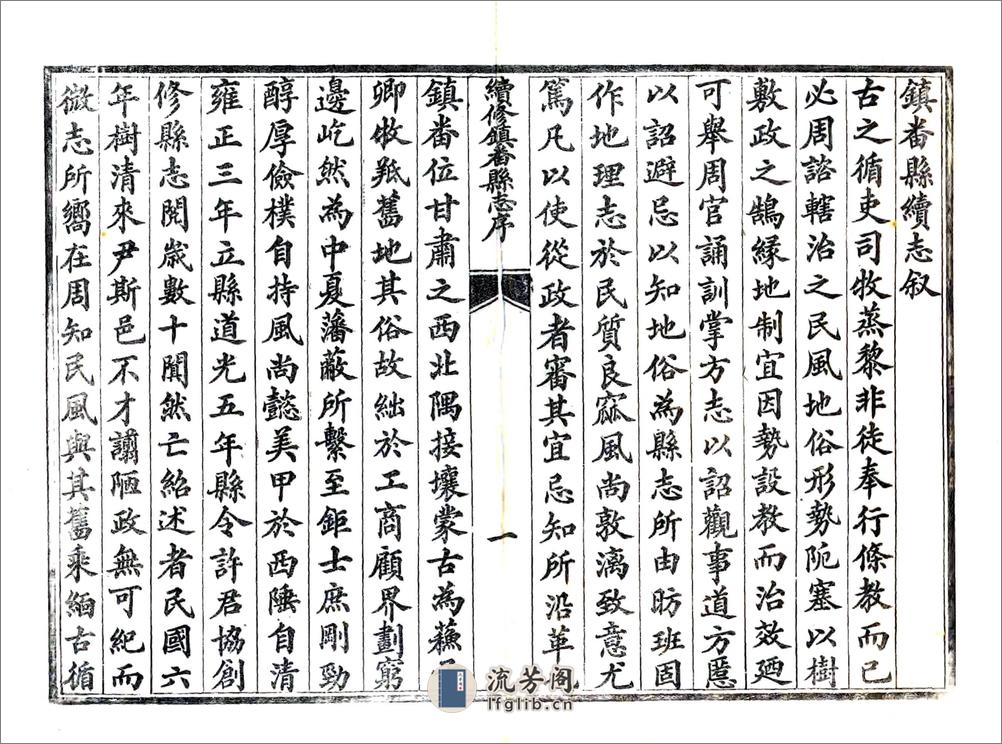 鎮番縣續志叙
古之循吏司牧蒸黎非徒奉行條教而已
必周諮轄治之民風地俗形勢阨塞以樹
敷政之鵠緣地制宜因勢設教而治效廼
可舉周官誦訓掌方志以詔觀事道方慝
以詔避忌以知地俗為縣志所由昉班固
作地理志於民質良窳風尚敦漓致意尤
篤凡以使從政者審其宜忌知所沿革
續修鎮番縣志序
一
鎮番位甘肅之西北隅接壤蒙古為蘇
卿牧羝舊地其俗故絀於工商顧界劃窮
邊屹然為中夏藩蔽所繫至鉅士庶剛勁
醇厚儉樸自持風尚懿美甲於西陲自清
雍正三年立縣道光五年縣令許君協創
修縣志閱歲數十闃然亡紹述者民國六
年樹清來尹斯邑不才譾陋政無可紀而
微志所嚮在周知民風與其舊乘緬古循
流芳阁
lfglib.cn